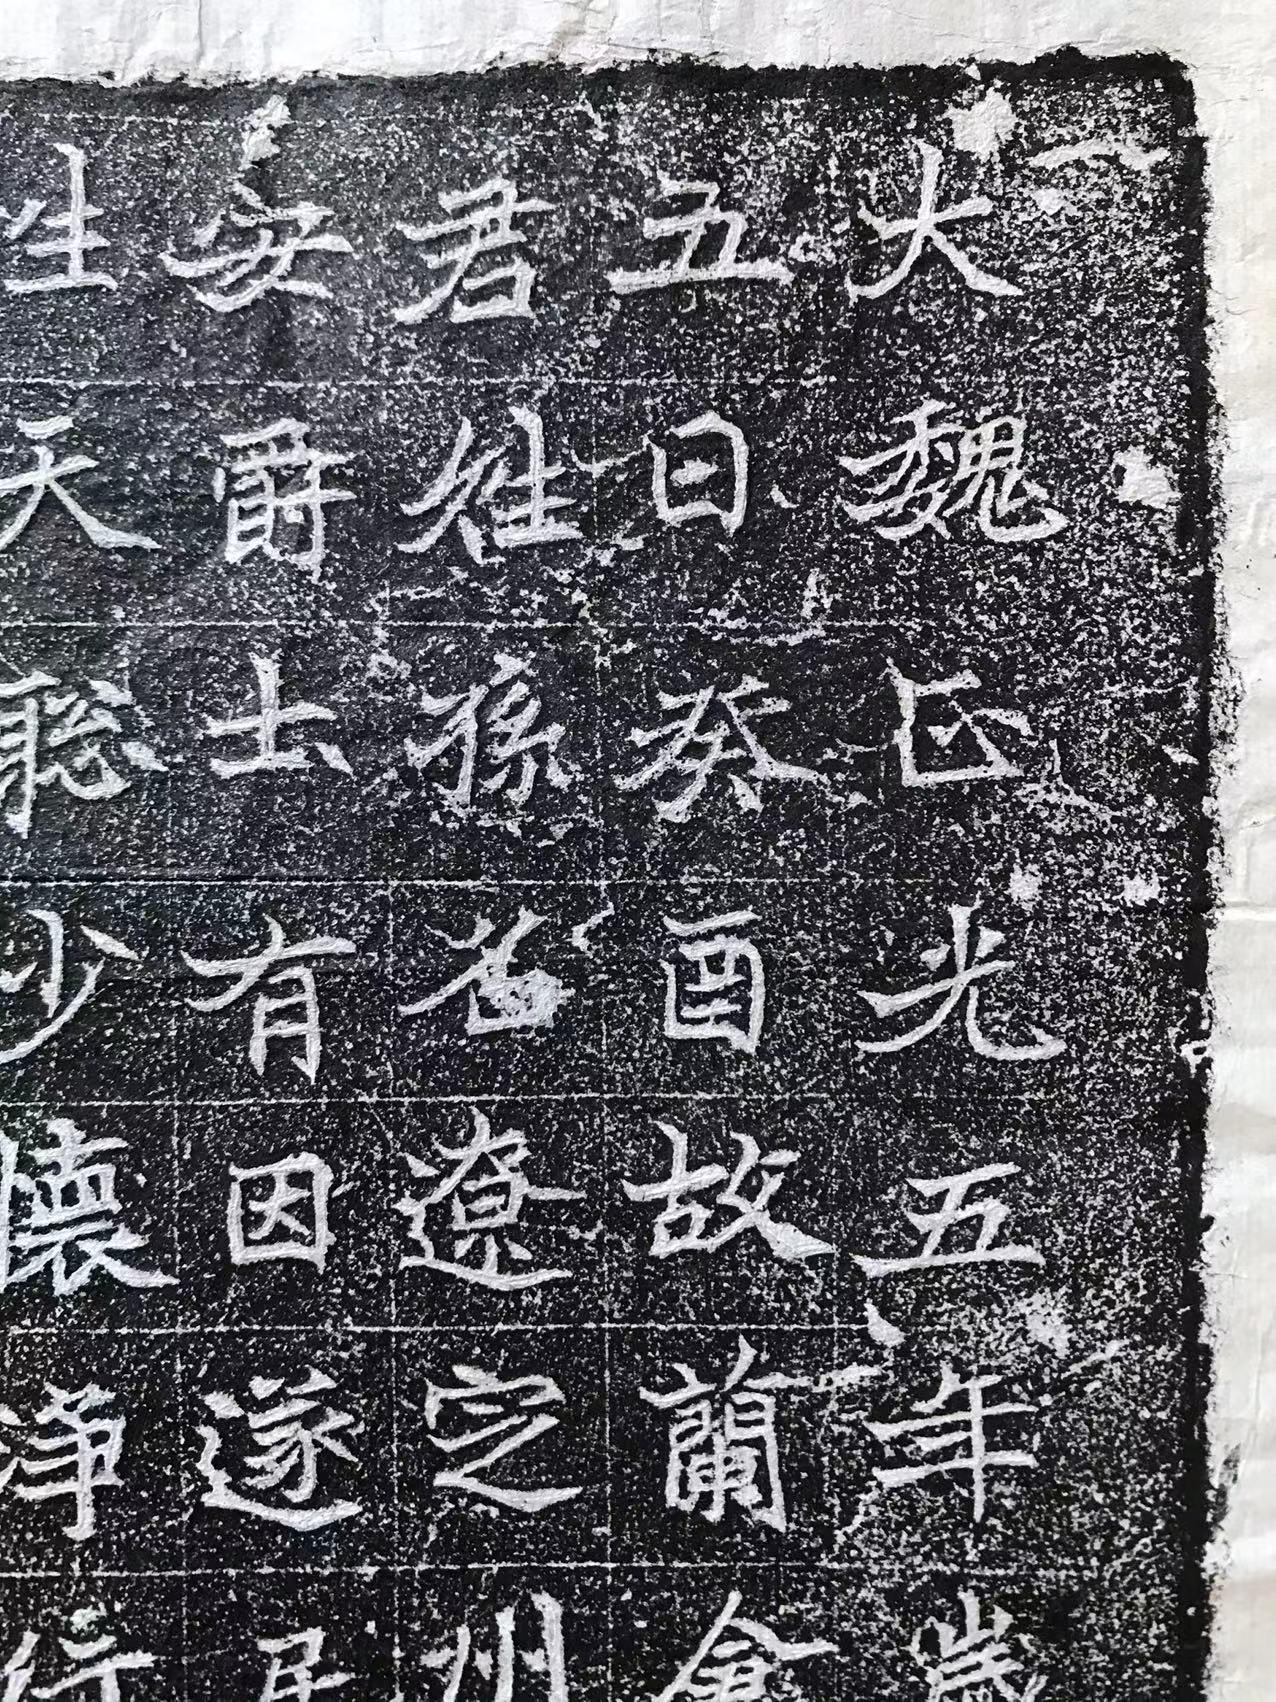 大魏正光五年歲
五日癸酉故蘭倉
君姓孫名遼定州
安爵土有因遂
性天聰少懷淨行